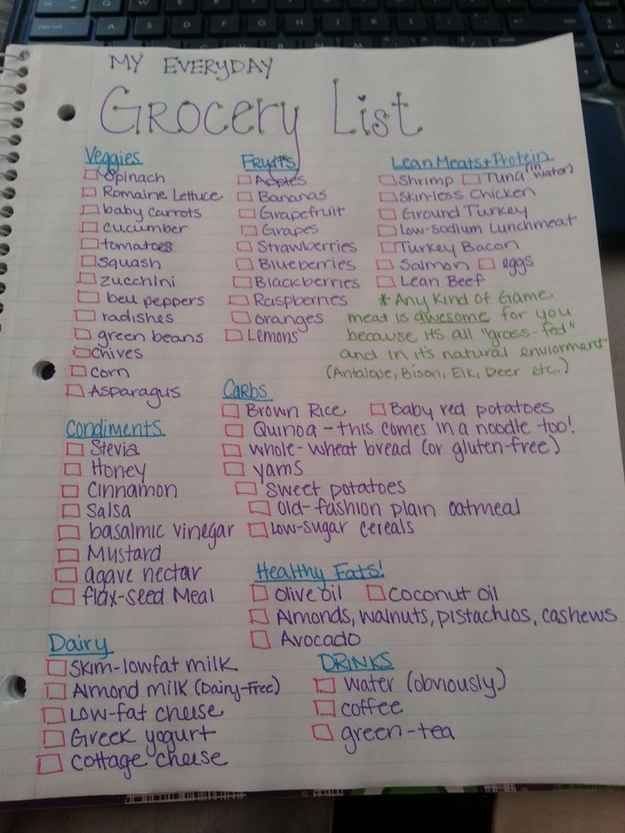 MY EVERYDAY
GROCERY LIST
Veggies
Spinach
Romaine Lettuce
baby carrots
cucumber
tomatoes
squash
zucchini
bell peppers
radishes
green beans
chives
corn
Asparagus
Fruits
Apples
Bananas
Grapefruit
Grapes
Strawberries
Blueberries
Blackberries
Raspberries
oranges
Lemons
Lean Meats + Protein
Shrimp Tuna (in water)
Skinless Chicken
Ground Turkey
Low-sodium Lunchmeat
Turkey Bacon
Salmon eggs
Lean Beef
* Any Kind of Game
meat is awesome for you
because its all "grass-fed"
and in it's natural enviorment
(Antalope, Bison, Elk, Deer etc.)
Carbs
Brown Rice Baby red potatoes
Quinoa - this comes in a noodle too!
whole-wheat bread (or gluten-free)
yams
Sweet potatoes
old-fashion plain oatmeal
Low-sugar cereals
Condiments
Stevia
Honey
Cinnamon
Salsa
basalmic vinegar
Mustard
agave nectar
flax-seed Meal
Healthy Fats!
Olive oil Coconut oil
Almonds, walnuts, pistachios, cashews
Avocado
Dairy
Skim-lowfat milk
Almond milk (Dairy-Free)
Low-fat cheese
Greek yogurt
cottage cheese
DRINKS
water (obviously)
coffee
green-tea